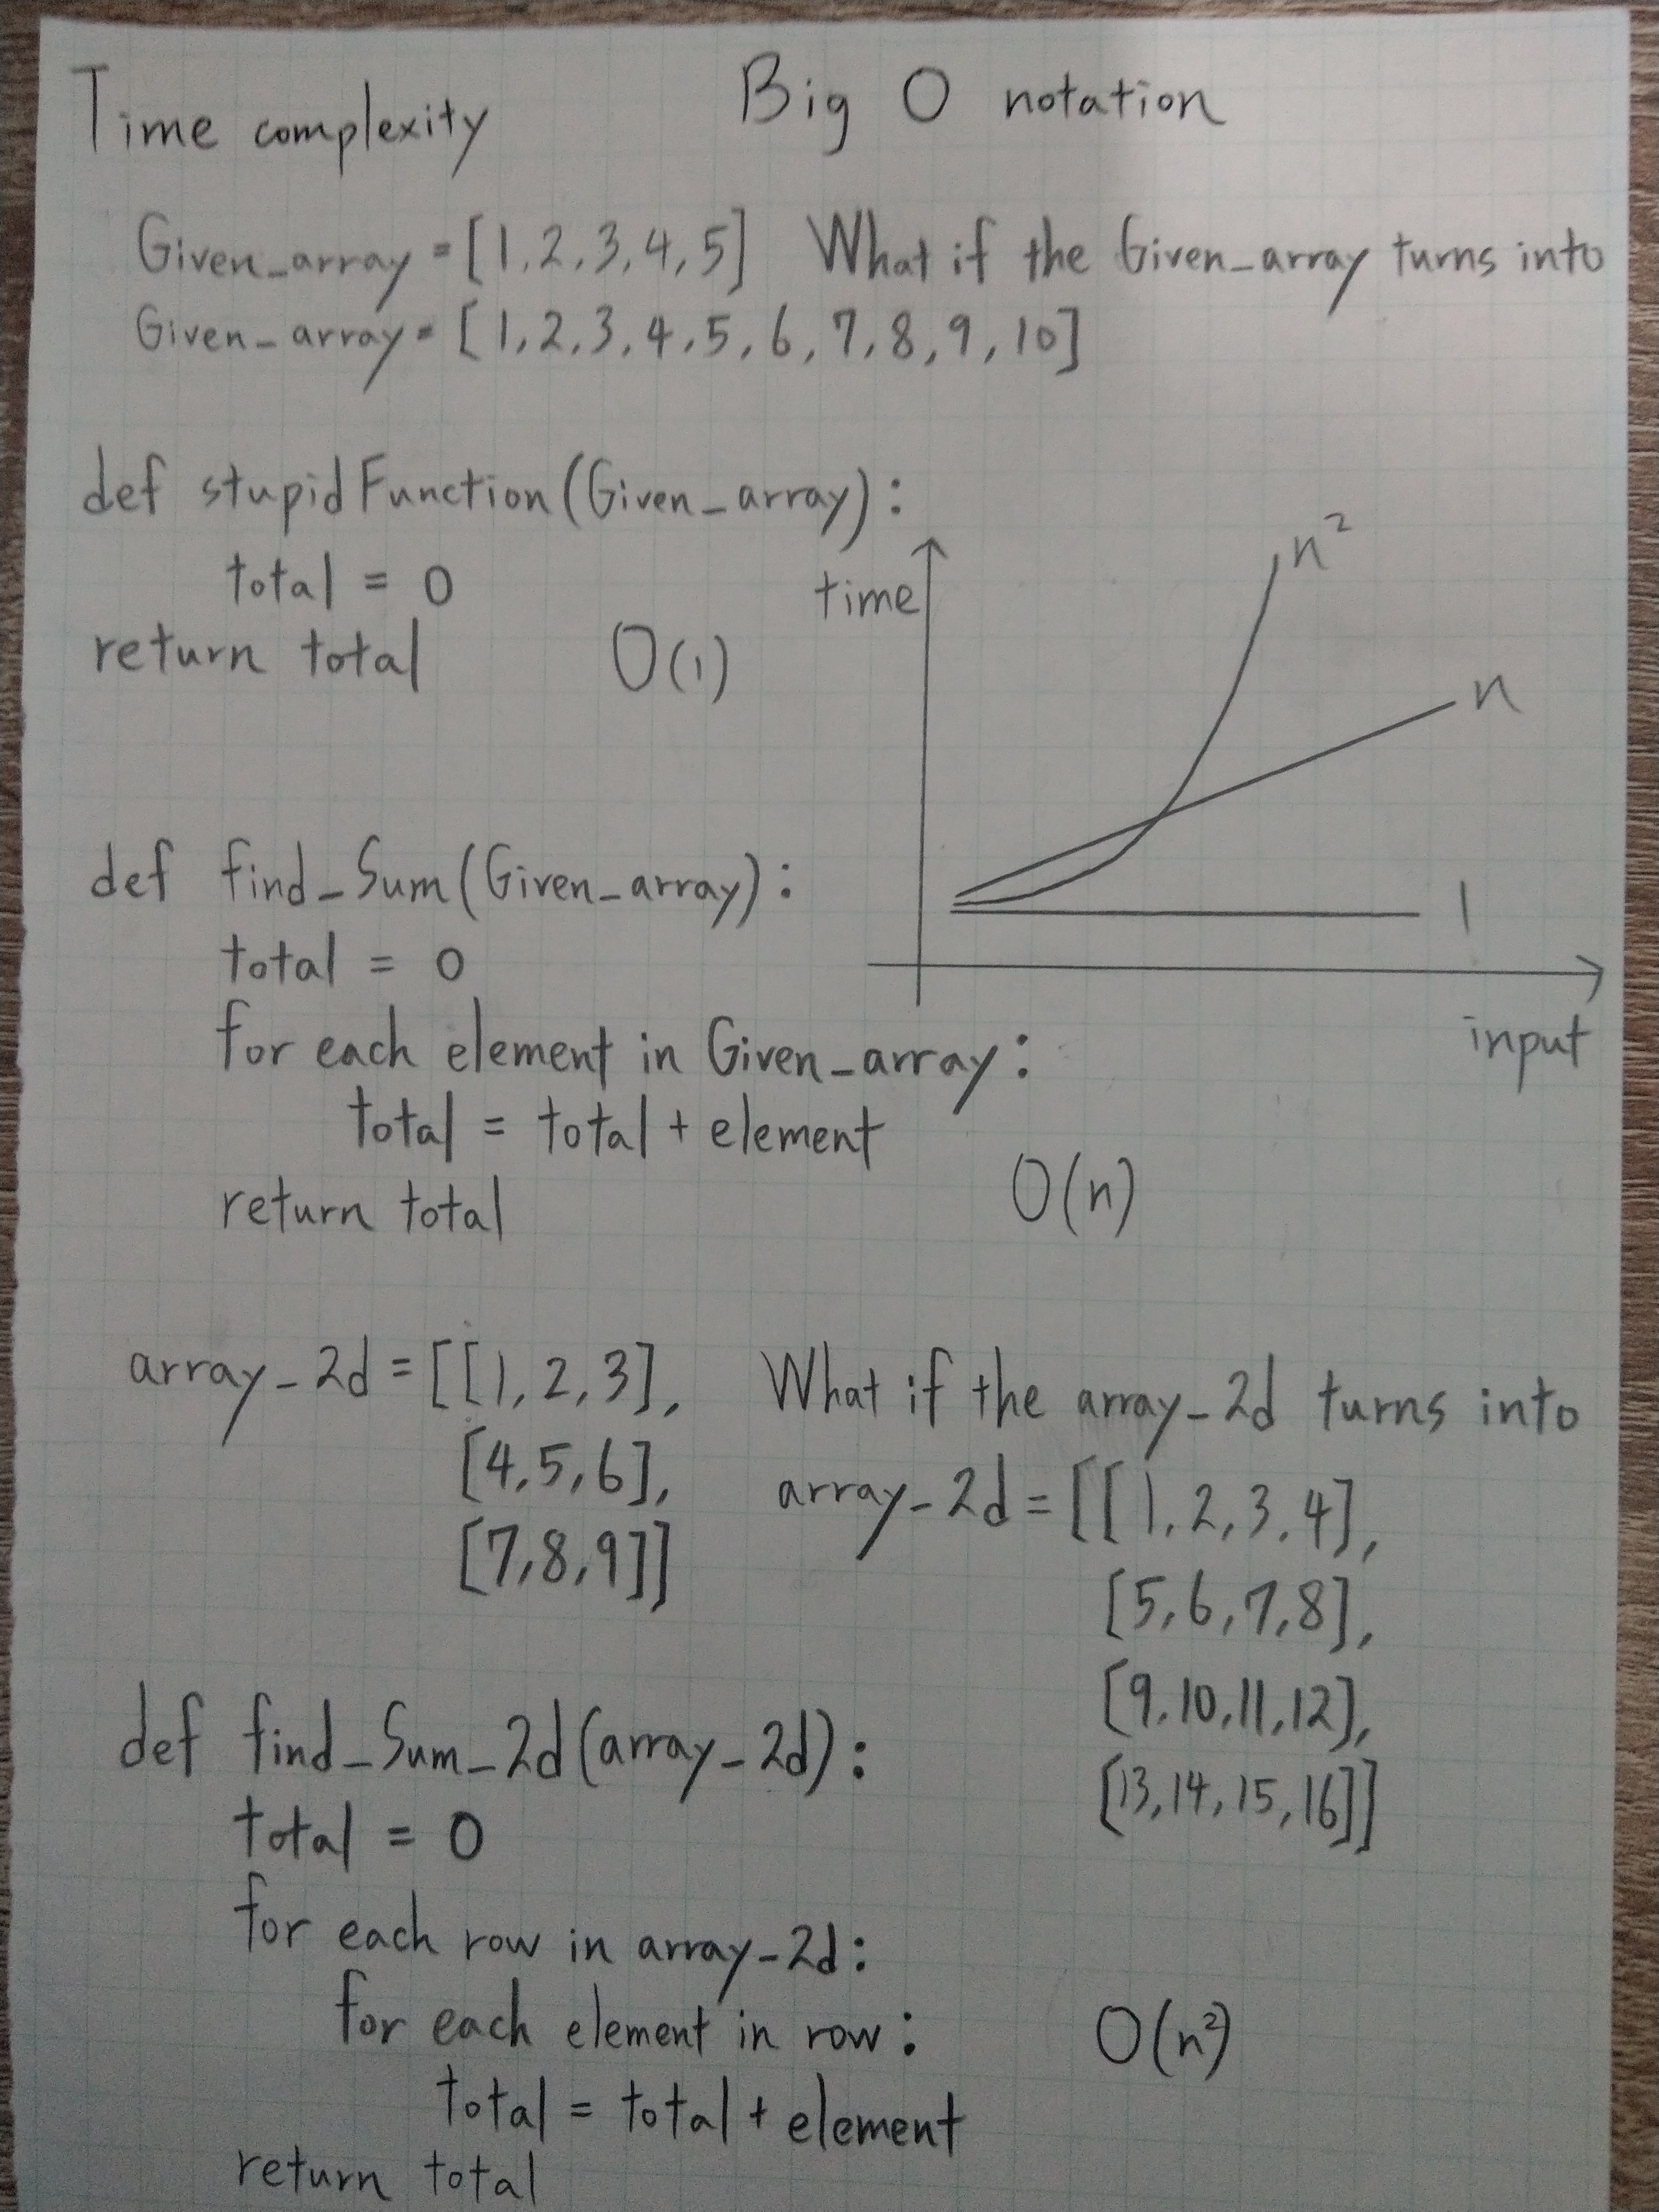 Time complexity Big O notation
Given_array = [1,2,3,4,5] What if the Given_array turns into
Given_array = [1,2,3,4,5,6,7,8,9,10]
def stupidFunction(Given_array):
total = 0
return total O(1)
time
n²
n
1
input
def find_Sum(Given_array):
total = 0
for each element in Given_array:
total = total + element
return total O(n)
array_2d = [[1,2,3],
[4,5,6],
[7,8,9]]
What if the array_2d turns into
array_2d = [[1,2,3,4],
[5,6,7,8],
[9,10,11,12],
[13,14,15,16]]
def find_Sum_2d(array_2d):
total = 0
for each row in array_2d:
for each element in row: O(n²)
total = total + element
return total